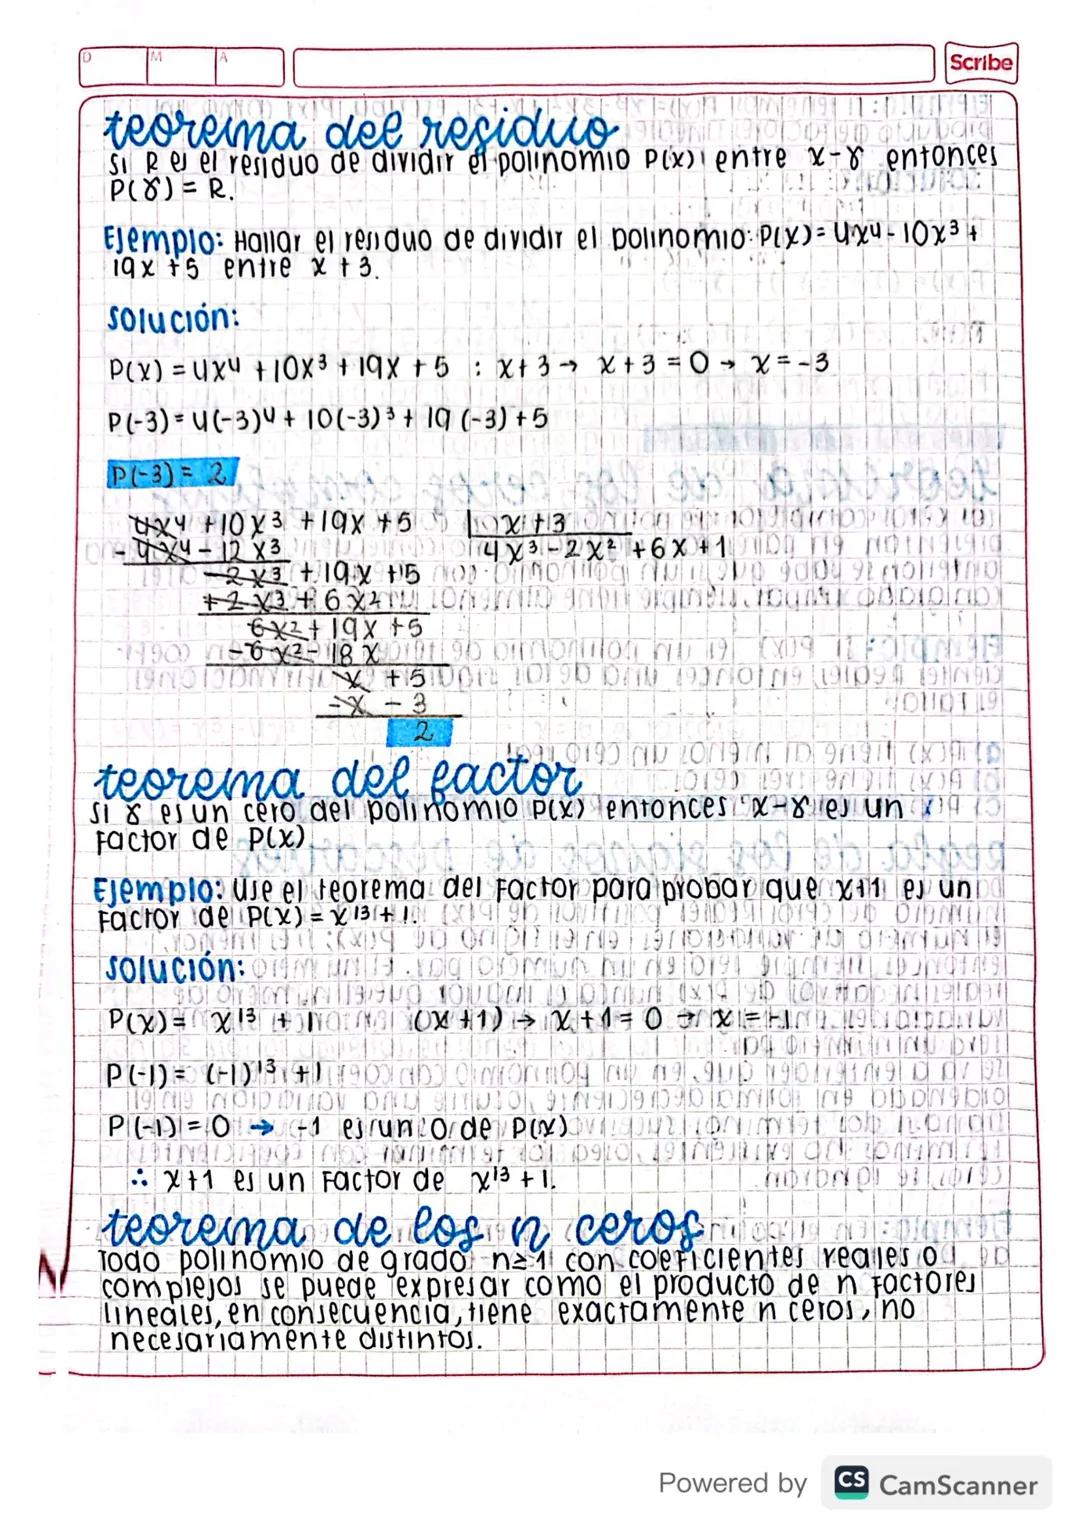 D M A
Scribe
teorema del residuo
Si R es el residuo de dividir el polinomio P(x) entre x-γ entonces
P(γ) = R.
Ejemplo: Hallar el residuo de dividir el polinomio: P(x) = 4x⁴ - 10x³ +
19x + 5 entre x + 3.
Solución:
P(x) = 4x⁴ + 10x³ + 19x + 5 : x + 3 → x + 3 = 0 → x = -3
P(-3) = 4(-3)⁴ + 10(-3)³ + 19(-3) + 5
P(-3) = 2
4x⁴ + 10x³ + 19x + 5 x + 3
- 4x⁴ - 12x³ 4x³ - 2x² + 6x + 1
-2x³ + 19x + 5
+2x³ + 6x²
6x² + 19x + 5
-6x² - 18x
x + 5
-x - 3
2
teorema del factor
Si γ es un cero del polinomio P(x) entonces x-γ es un
Factor de P(x)
Ejemplo: Use el teorema del Factor para probar que x+1 es un
Factor de P(x) = x¹³ + 1.
Solución:
P(x) = x¹³ + 1 (x + 1) → x + 1 = 0 → x = -1
P(-1) = (-1)¹³ + 1
P(-1) = 0 → -1 es un 0 de P(x)
∴ x+1 es un Factor de x¹³ + 1.
teorema de los n ceros
Todo polinomio de grado n≥1 con coeficientes reales o
complejos se puede expresar como el producto de n Factores
lineales, en consecuencia, tiene exactamente n ceros, no
necesariamente distintos.
Powered by CS CamScanner